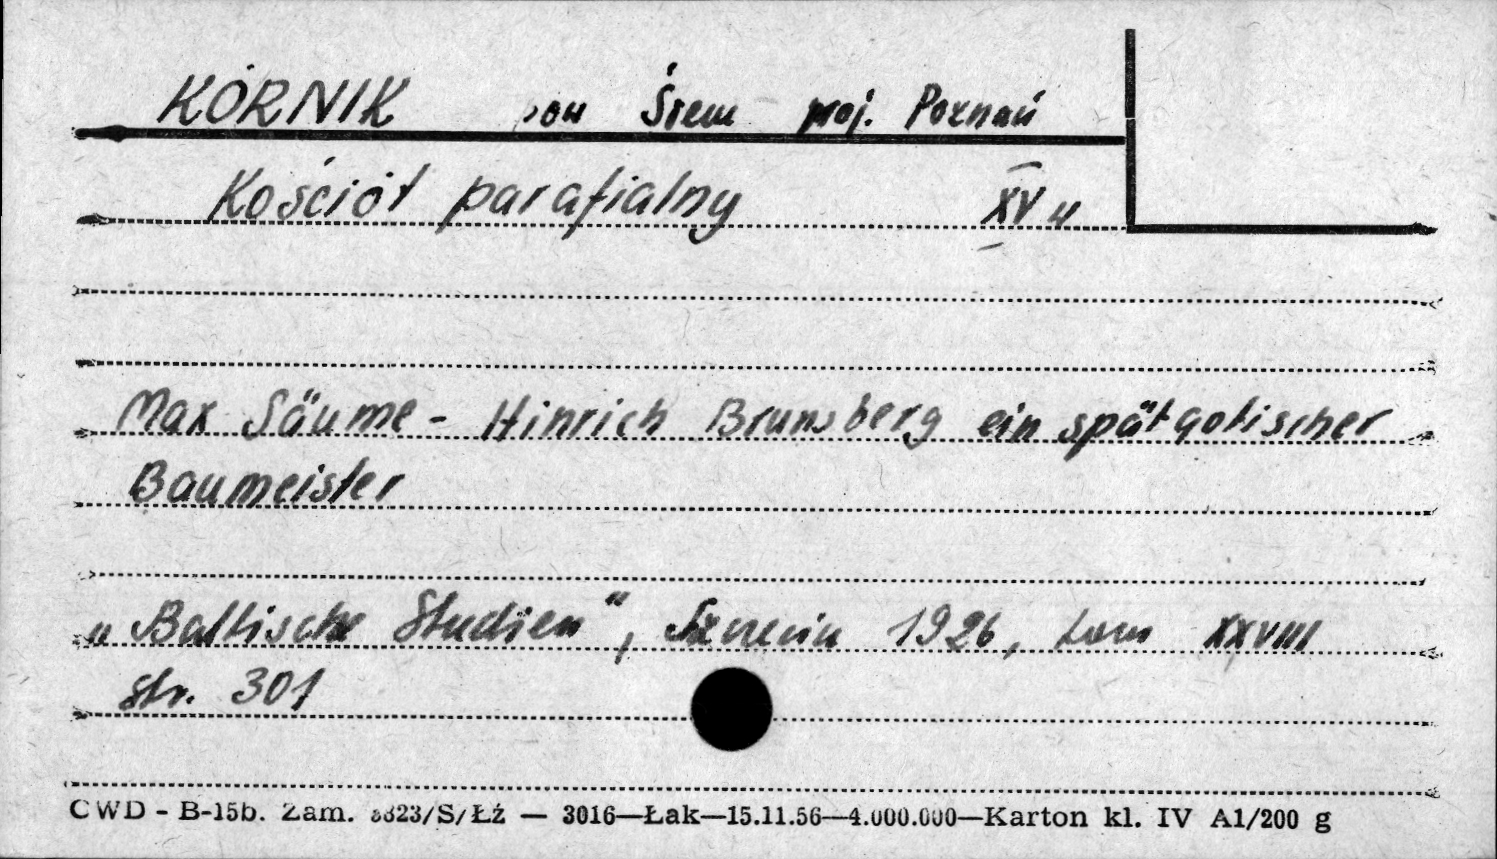 KÓRNIK pow Śrem woj. Poznań
Kościół parafialny XV w
Max Säume - Hinrich Brunsberg ein spätgotischer
Baumeister
„Baltische Studien", Szczecin 1926, tom XXVIII
str. 301
CWD - B-15b. Zam. 8823/S/Łź — 3016—Łak—15.11.56—4.000.000—Karton kl. IV A1/200 g